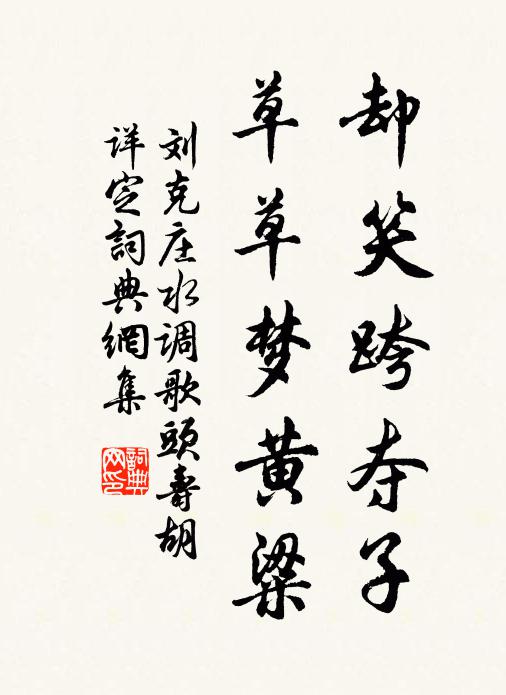 却笑跨夺子
草草梦黄粱
刘克庄水调歌头寿胡
详定詞典網集
詞典网印